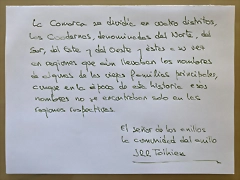 La Comarca se dividía en cuatro distritos,
las Cuadernas, denominadas del Norte, del
Sur, del Este y del Oeste y éstas a su vez
en regiones que aún llevaban los nombres
de algunas de las viejas familias principales,
aunque en la época de esta historia esos
nombres no se encontraban sólo en las
regiones respectivas.
El señor de los anillos
la comunidad del anillo
JRR Tolkien